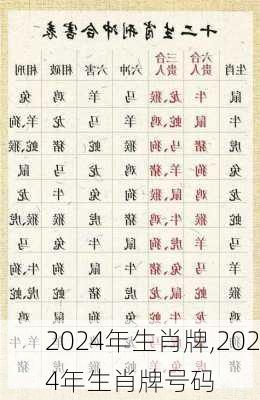 十二生肖刑冲合害表
生肖 六合贵人 三合贵人 六冲 六害 相破 相刑
鼠 牛 龙、猴 马 羊 鸡 兔
牛 鼠 蛇、鸡 羊 马 龙 狗、羊
虎 猪 马、狗 猴 蛇 猪 蛇、猴
兔 狗 羊、猪 鸡 龙 马 鼠
龙 鸡 鼠、猴 狗 兔 牛 龙
蛇 猴 牛、鸡 猪 虎 猴 虎、猴
马 羊 虎、狗 鼠 牛 兔 马
羊 马 兔、猪 牛 鼠 狗 牛、狗
猴 蛇 鼠、龙 虎 猪 蛇 虎、蛇
2024年生肖牌,202
4年生肖牌号码